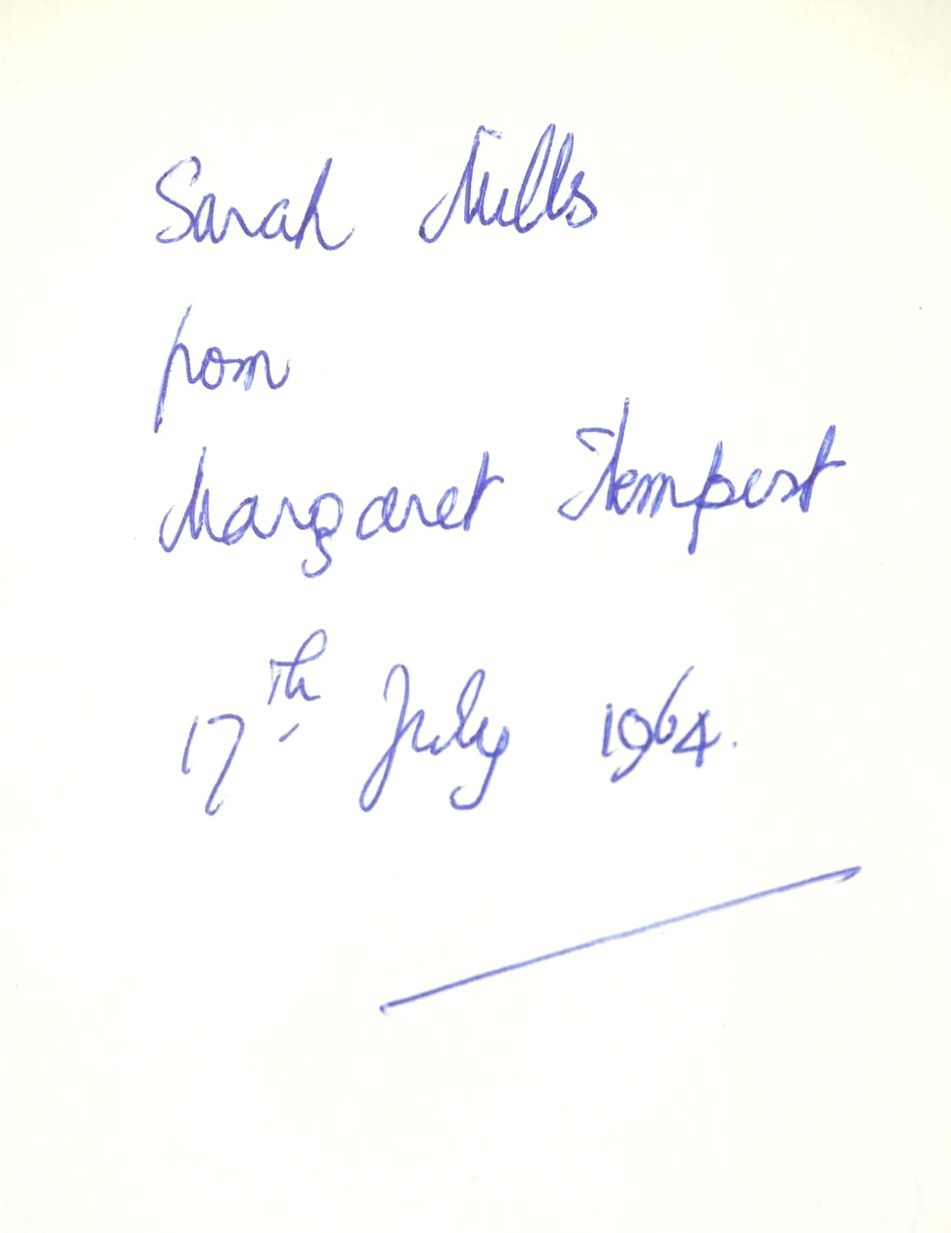 Sarah Mills
from
Margaret Tempest
17th July 1964.